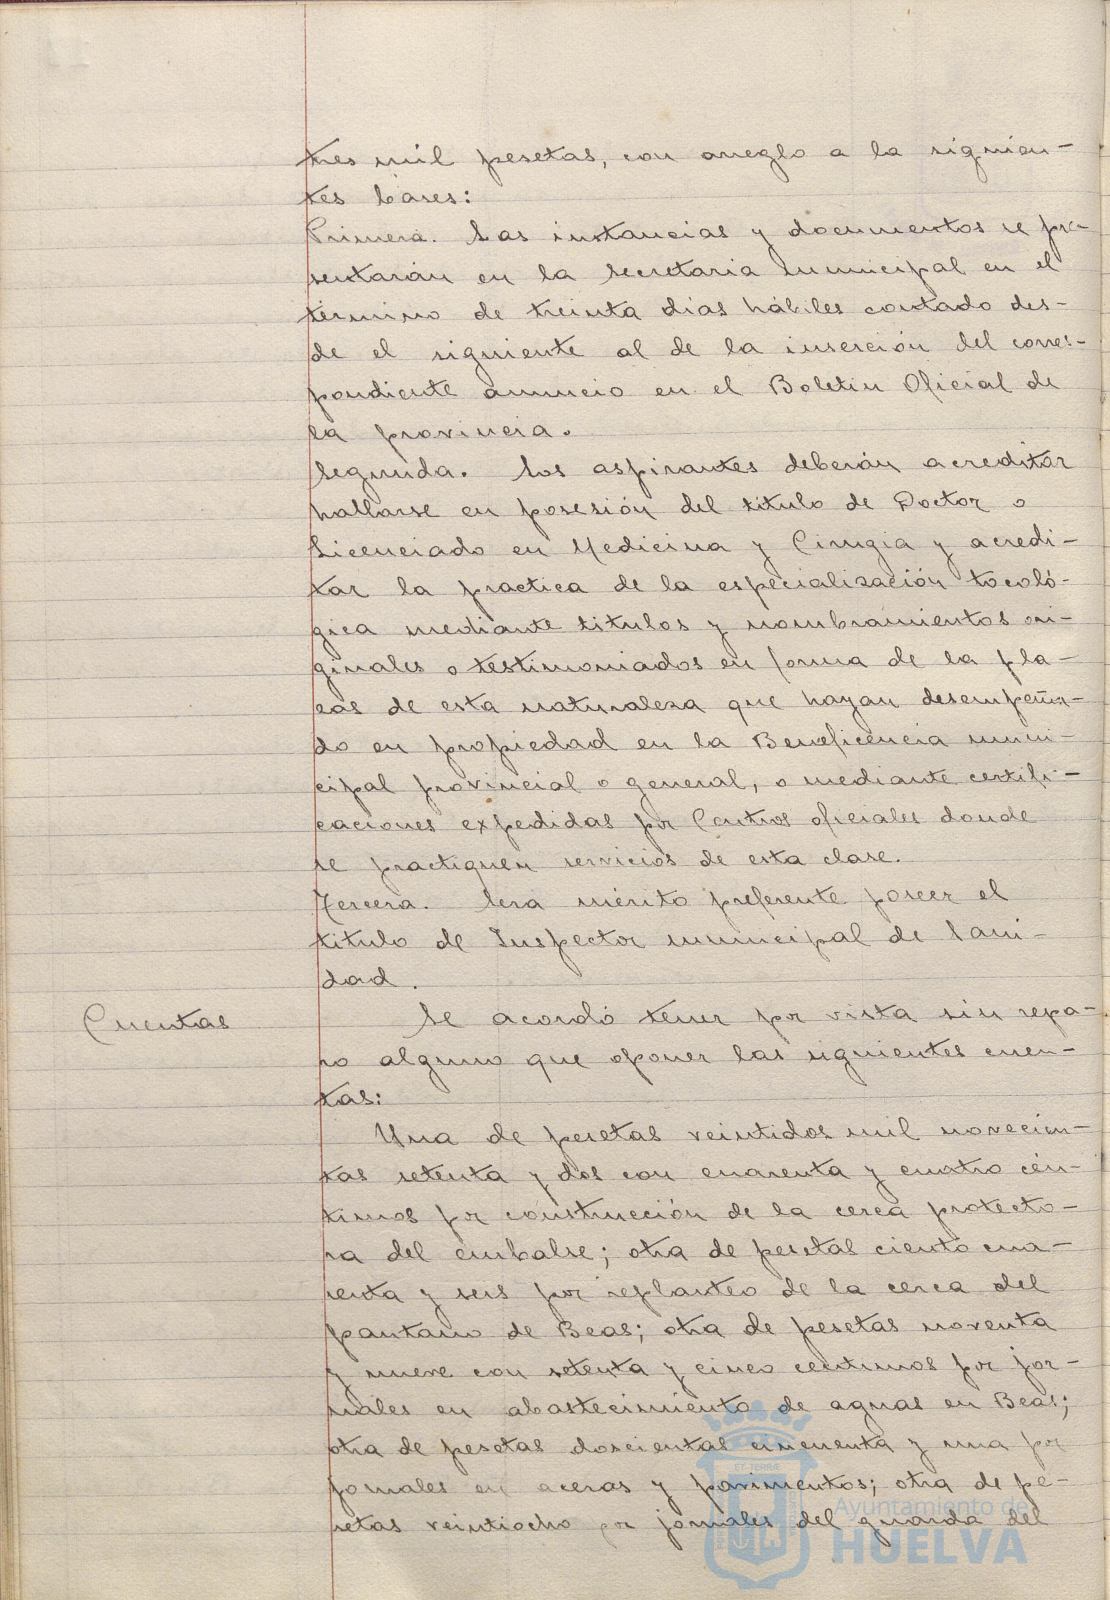 tres mil pesetas, con arreglo a la siguien-
tes bases:
Primera. Las instancias y documentos se pre-
sentarán en la Secretaria municipal en el
término de treinta dias hábiles contado des-
de el siguiente al de la inserción del corres-
pondiente anuncio en el Boletin Oficial de
la provincia.
Segunda. Los aspirantes deberán acreditar
hallarse en posesión del titulo de Doctor o
Licenciado en Medicina y Cirugia y acredi-
tar la practica de la especialización tocoló-
gica mediante titulos y nombramientos ori-
ginales o testimoniados en forma de la pla-
zas de esta naturaleza que hayan desempeña-
do en propiedad en la Beneficencia muni-
cipal provincial o general, o mediante certifi-
caciones expedidas por Centros oficiales donde
se practiquen servicios de esta clase.
Tercera. Sera mérito preferente poseer el
titulo de Inspector municipal de Sani-
dad.
Cuentas
Se acordó tener por vista sin repa-
ro alguno que oponer las siguientes cuen-
tas:
Una de pesetas veintidos mil novecien-
tas setenta y dos con cuarenta y cuatro cén-
timos por construcción de la cerca protecto-
ra del embalse; otra de pesetas ciento cua-
renta y seis por replanteo de la cerca del
pantano de Beas; otra de pesetas noventa
y nueve con setenta y cinco centimos por jor-
nales en abastecimiento de aguas en Beas;
otra de pesetas doscientas cincuenta y una por
jornales en aceras y pavimentos; otra de pe-
setas veintiocho por jornales del guarda del
Ayuntamiento de
HUELVA